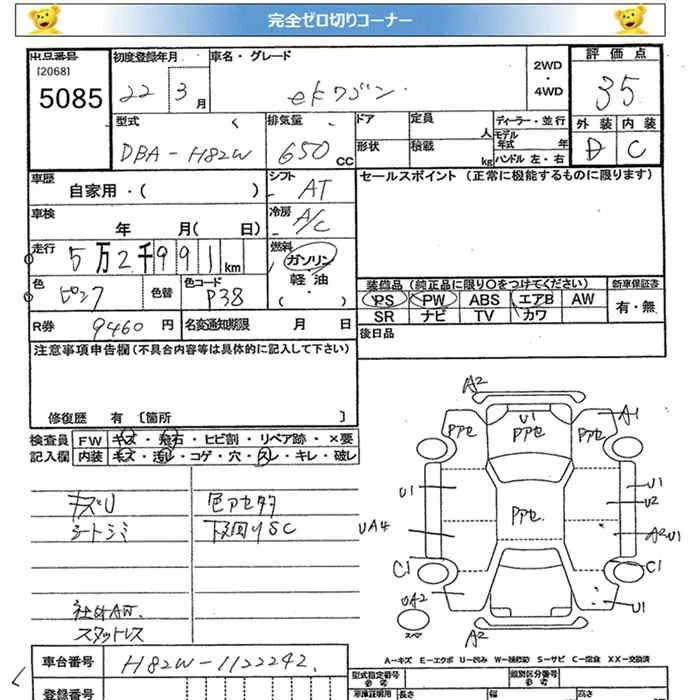 完全ゼロ切りコーナー
出品番号
[2068]
5085
初度登録年月
22 3月
車名・グレード
eKワゴン
2WD
・
4WD
評価点
35
外装 内装
D C
型式
DBA-H82W
排気量
650CC
ドア
定員
人
形状
積載
kg
ディーラー・並行
モデル年式 年
ハンドル 左・右
車歴
自家用・( )
シフト
AT
セールスポイント (正常に機能するものに限ります)
車検
年 月( 日)
冷房
A/C
走行
5万2千991km
燃料
ガソリン
軽油
( ・ )
色
ピンク
色替
色コード
P38
R券 9460円
名変通知期限 月 日
装備品 (純正品に限り○をつけてください)
PS PW ABS エアB AW
SR ナビ TV カワ
新車保証書
有・無
後日品
注意事項申告欄(不具合内容等は具体的に記入して下さい)
修復歴 有 〔箇所 〕
検査員
記入欄
FW キズ・飛石・ヒビ割・リペア跡・×要
内装 キズ・汚レ・コゲ・穴・スレ・キレ・破レ
キズU
シートシミ
色アセ多
下回りSC
社外AW.
スタットレス
A2
U1
Pアセ
Pアセ
Pアセ
A1
U1
U1
U2
Pアセ.
UA4
A2 U1
C1
C1
UA2
U1
スペア
A2
A-キズ E-エクボ U-凹み W-補修跡 S-サビ C-腐食 XX-交換済
車台番号
H82W-1122242.
登録番号
型式指定番号
参考
類別区分番号
参考
車庫証明用
参考
長さ
幅
高さ